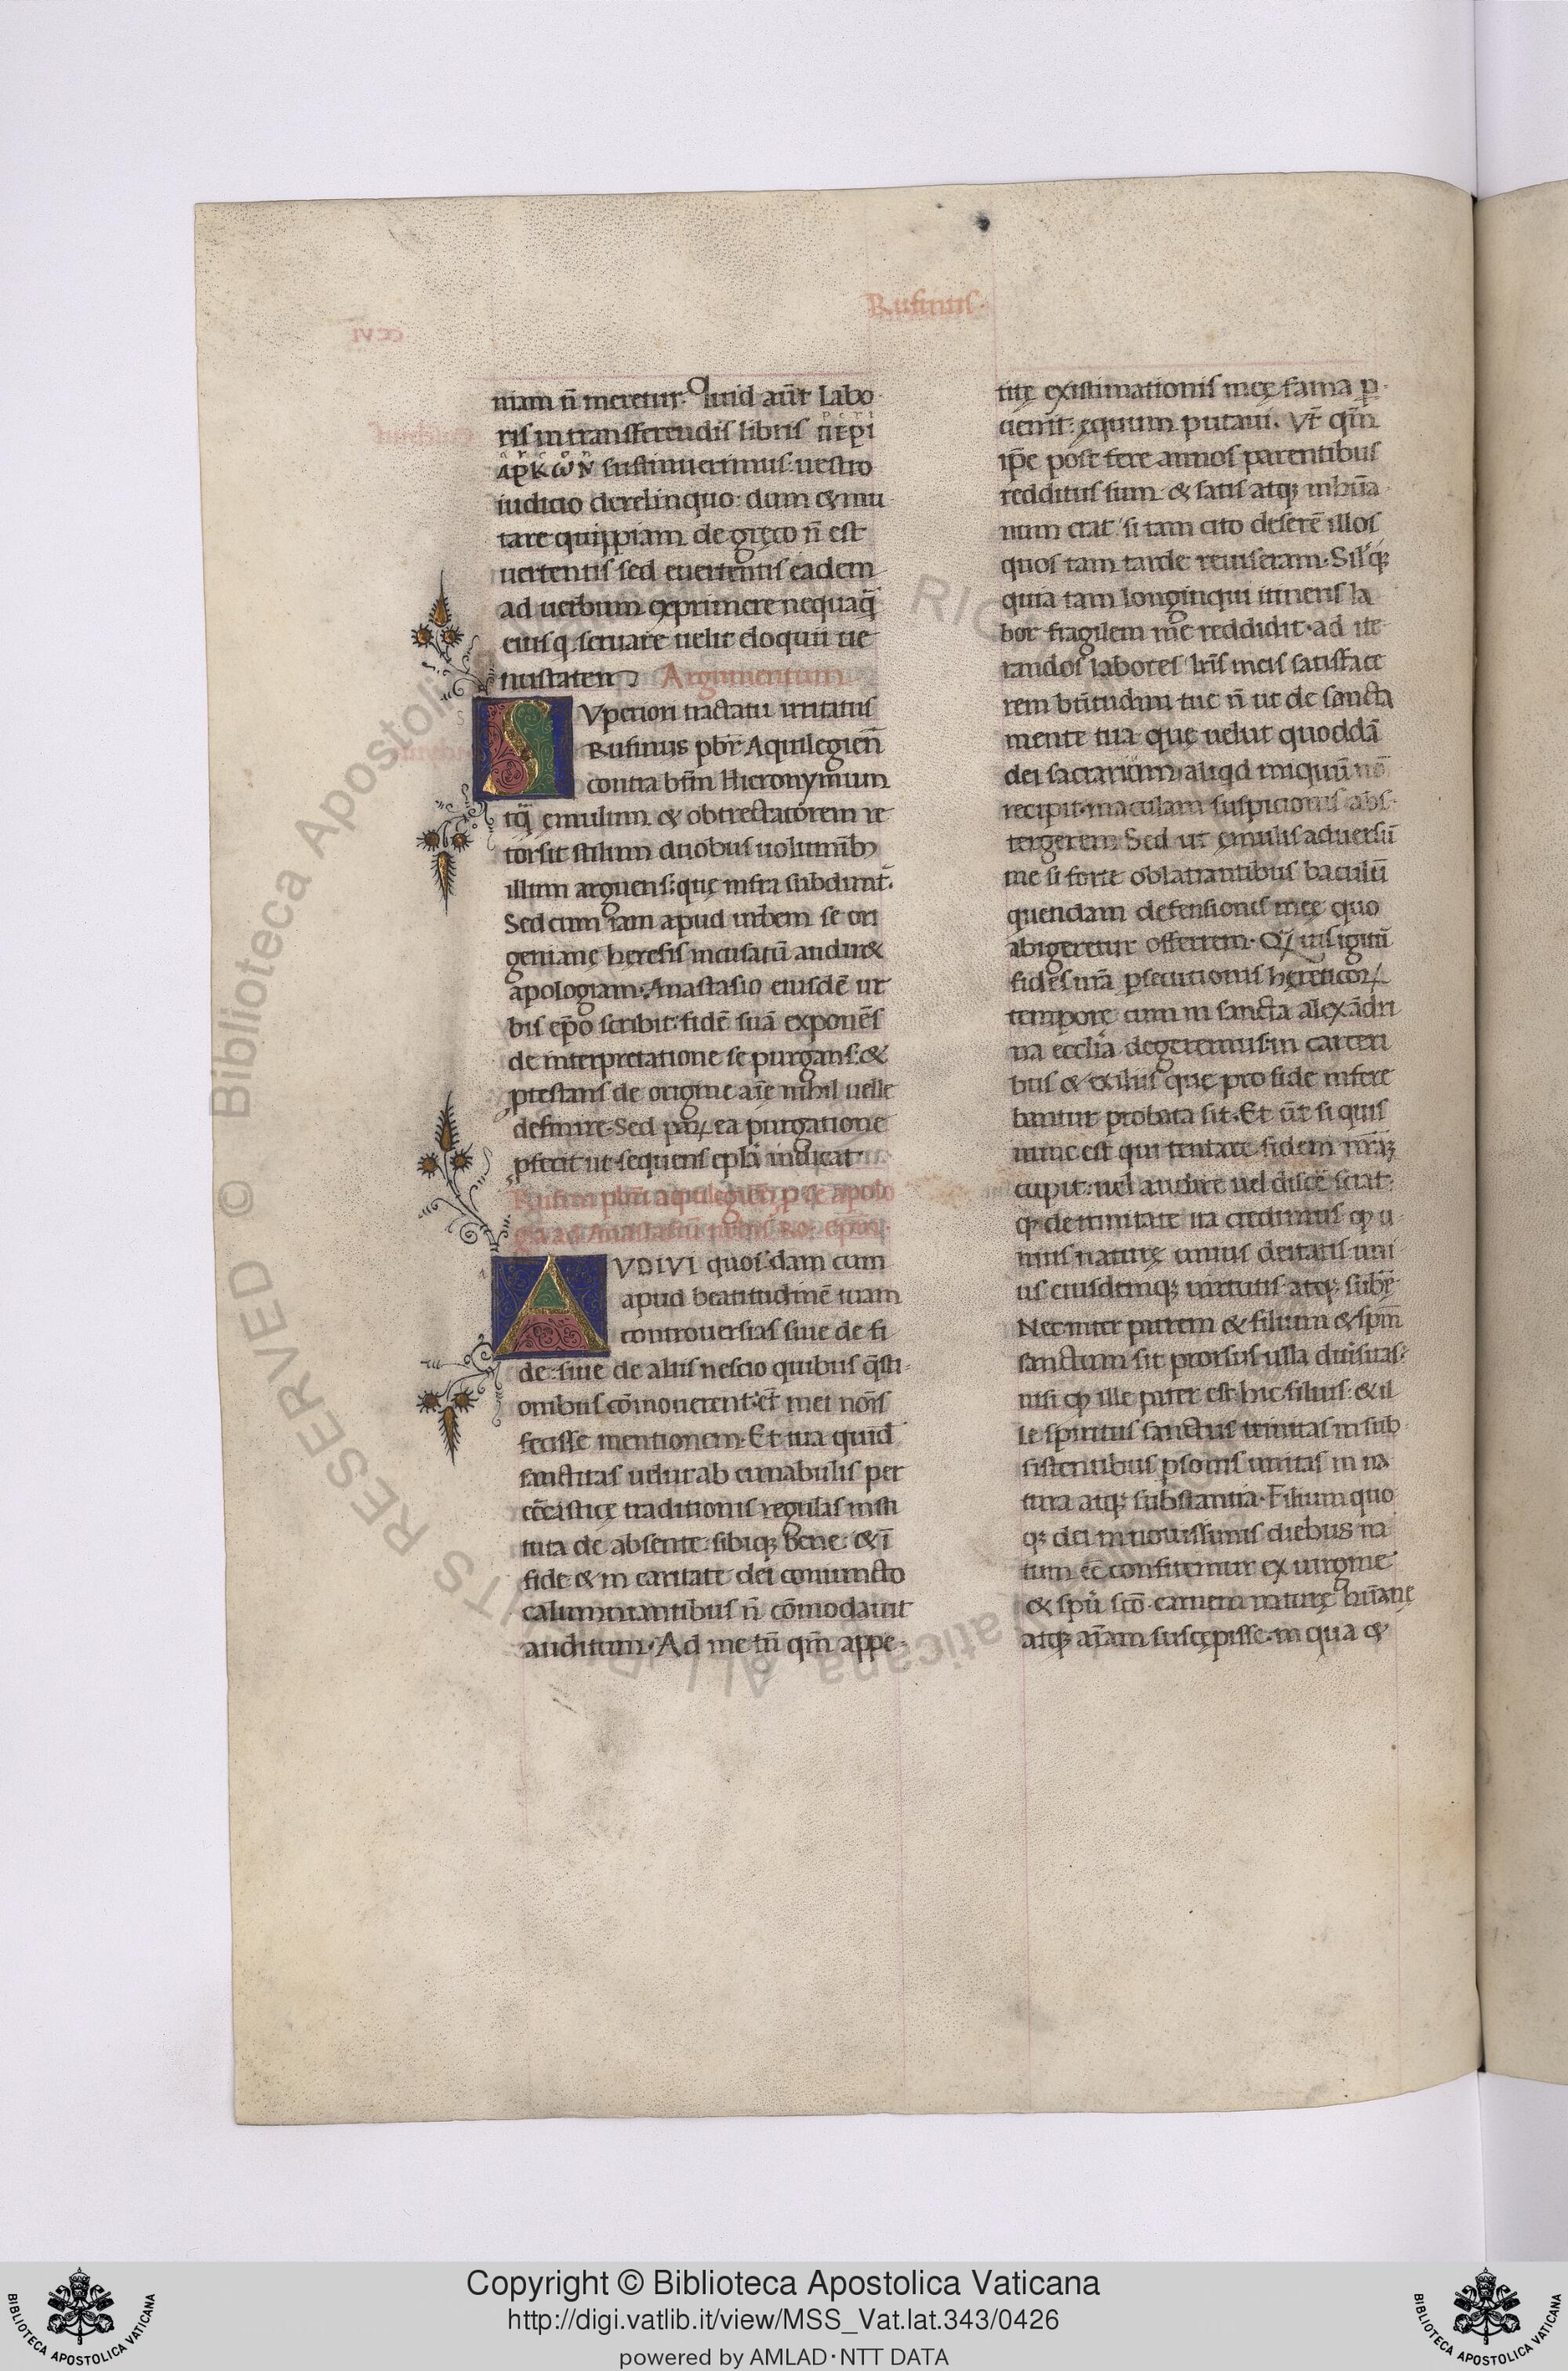 Rufinus·
niam n̄ meretur· Quid aūt labo
ris in transferendis libris περὶ
peri
αρκων sustinuerimus: uestro
iudicio derelinquo: dum & mu
tare quippiam de gręco n̄ est
uertentis sed euertentis eadem
ad uerbum exprimere nequaq̄
eius q seruare uelit eloquii ue
nustatem Argumentum
SVperiori tractatu irritatus
Rufinus pbr̄ Aquilegien̄
contra bt̄m Hieronymum
tq̄ȝ ęmulum & obtrectatorem re
torsit stilum duobus uolumīb
illum arguens: quę infra subdunt̄.
Sed cum iam apud urbem se ori
genianę hęresis incusatū audir&
apologiam: Anastasio eiusdē ur
bis ep̄o scribit: fidē suā exponēs
de interpretatione se purgans: &
ptestans de origine aīe nihil uelle
definire· Sed parꝝ ea purgatione
pfecit ut sequens epl̄a indicat·
Rufini pbr̄i aquilegieñ p se apolo
gia ad Anastasiū urbis Ro· ep̄m·
AVDIVI quosdam cum
apud beatitudinē tuam
controuersias siue de fi
de: siue de aliis nescio quibus q̄sti
onibus cōmouerent: et̄ mei nōīs
fecisse mentionem· Et tua quid̄
sanctitas uelut ab cunabulis per
ecc̄iasticę traditionis regulas insti
tuta de absente: sibiqȝ bene: & ī
fide & in caritate dei coniuncto
calumniantibus n̄ cōmodauit
auditum· Ad me tn̄ qm̄ appe
titę existimationis meę fama p
uenit: ęquum putaui. Vt̄ qm̄
ip̄e post fere annos parentibus
redditus sum· & satis atqȝ inhūa
num erat si tam cito deserē illos
quos tam tarde reuiseram· Sil̄qȝ
quia tam longinqui itineris la
bor fragilem me reddidit· ad ite
randos labores· lr̄is meis satisface
rem btitudini tuę n̄ ut de sancta
mente tua quę uelut quoddā
dei sacrarium aliqd iniquū nō
recipit· maculam suspicionis abs
tergerem· Sed ut ęmulis aduersū
me si forte oblatrantibus baculū
quendam defensionis meę quo
abigeretur offerrem· Quis igitur̄
fides nr̄a psecutionis hęreticoꝝ
tempore cum in sancta alexādri
na ecclīa degeremus· in carceri
bus & exiliis quę pro fide infere
bantur probata sit· Et n̄r si quis
nunc est qui tentare fidem nr̄aȝ
cupit: uel audire uel discē sciat:
qꝫ de trinitate ita credimus qꝫ u
nius naturę unius deitatis uni
us eiusdemqȝ uirtutis atqȝ subę
Nec inter patrem & filium & spm̄
sanctum sit prorsus ulla diuisitas:
nisi qꝫ ille pater est· hic filius: & il
le spiritus sanctus trinitas in sub
sistentibus psonis unitas in na
tura atqȝ substantia· Filium quo
qȝ dei in nouissimis diebus na
tum ee̅ confitemur ex uirgine
& spū scō carnem naturę hūanę
atqȝ aīam suscępisse· in qua &
Copyright © Biblioteca Apostolica Vaticana
http://digi.vatlib.it/view/MSS_Vat.lat.343/0426
powered by AMLAD·NTT DATA